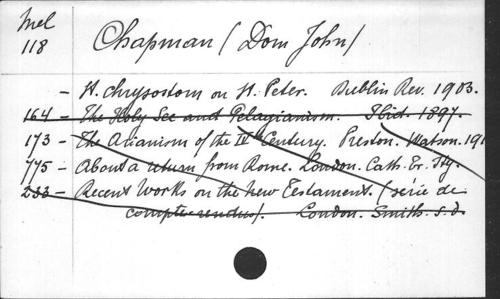 Mel
118
Chapman (Dom John)
- St. Chrysostom on St. Peter. Dublin Rev. 1903.
164 - The Holy See and Pelagianism. Ibid. 1897.
173 - The Arianism of the IVth Century. Preston. Watson. 191
775 - About a return from Rome. London. Cath. Tr. Sty.
233 - Recent Works on the New Testament. (série de
compte-rendus). London. Smith. s.d.